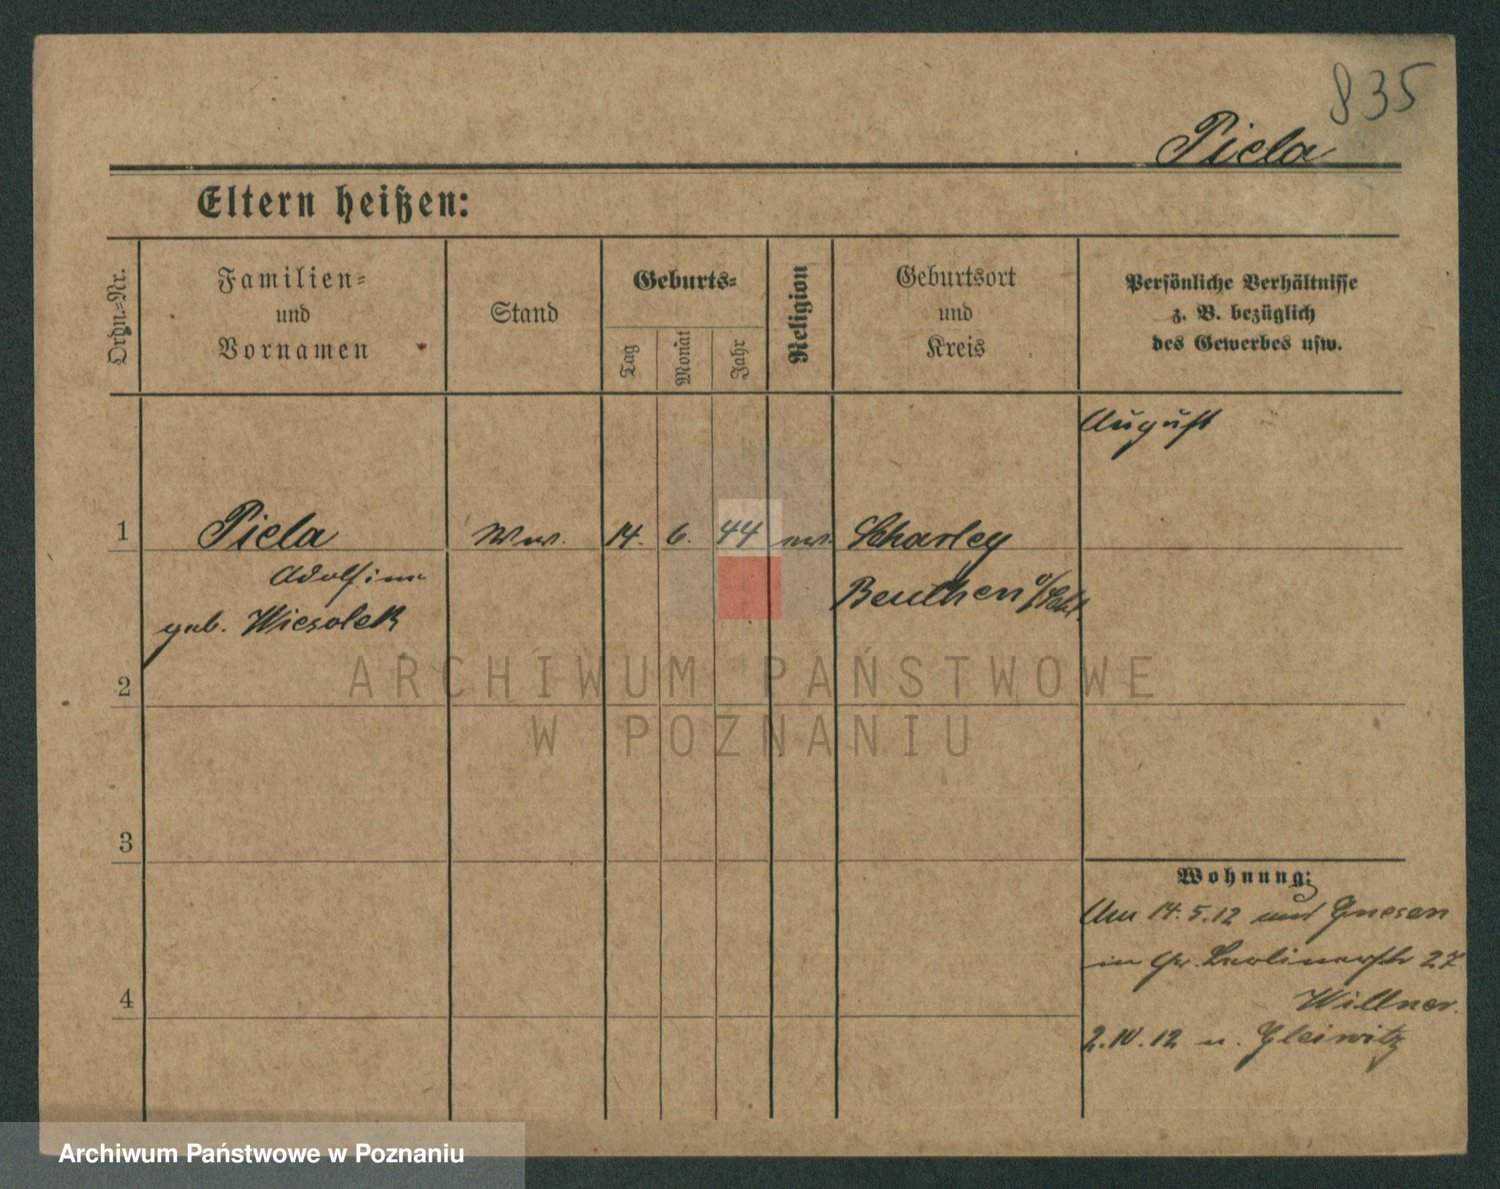 835
Piela
Eltern heißen:
Ordn.-Nr.
Familien-
und
Vornamen
Stand
Geburts-
Tag
Monat
Jahr
Religion
Geburtsort
und
Kreis
Persönliche Verhältnisse
z. B. bezüglich
des Gewerbes usw.
August
1 Piela Ww. 14. 6. 44 Scharley
Adolfine
geb. Wiesolek
Beuthen o/Schl.
2
3
4
Wohnung:
Am 14.5.12 Gnesen
in Gr. Berlinerstr 27
Willner.
2.10.12 n. Gleiwitz
ARCHIWUM PAŃSTWOWE
W POZNANIU
Archiwum Państwowe w Poznaniu